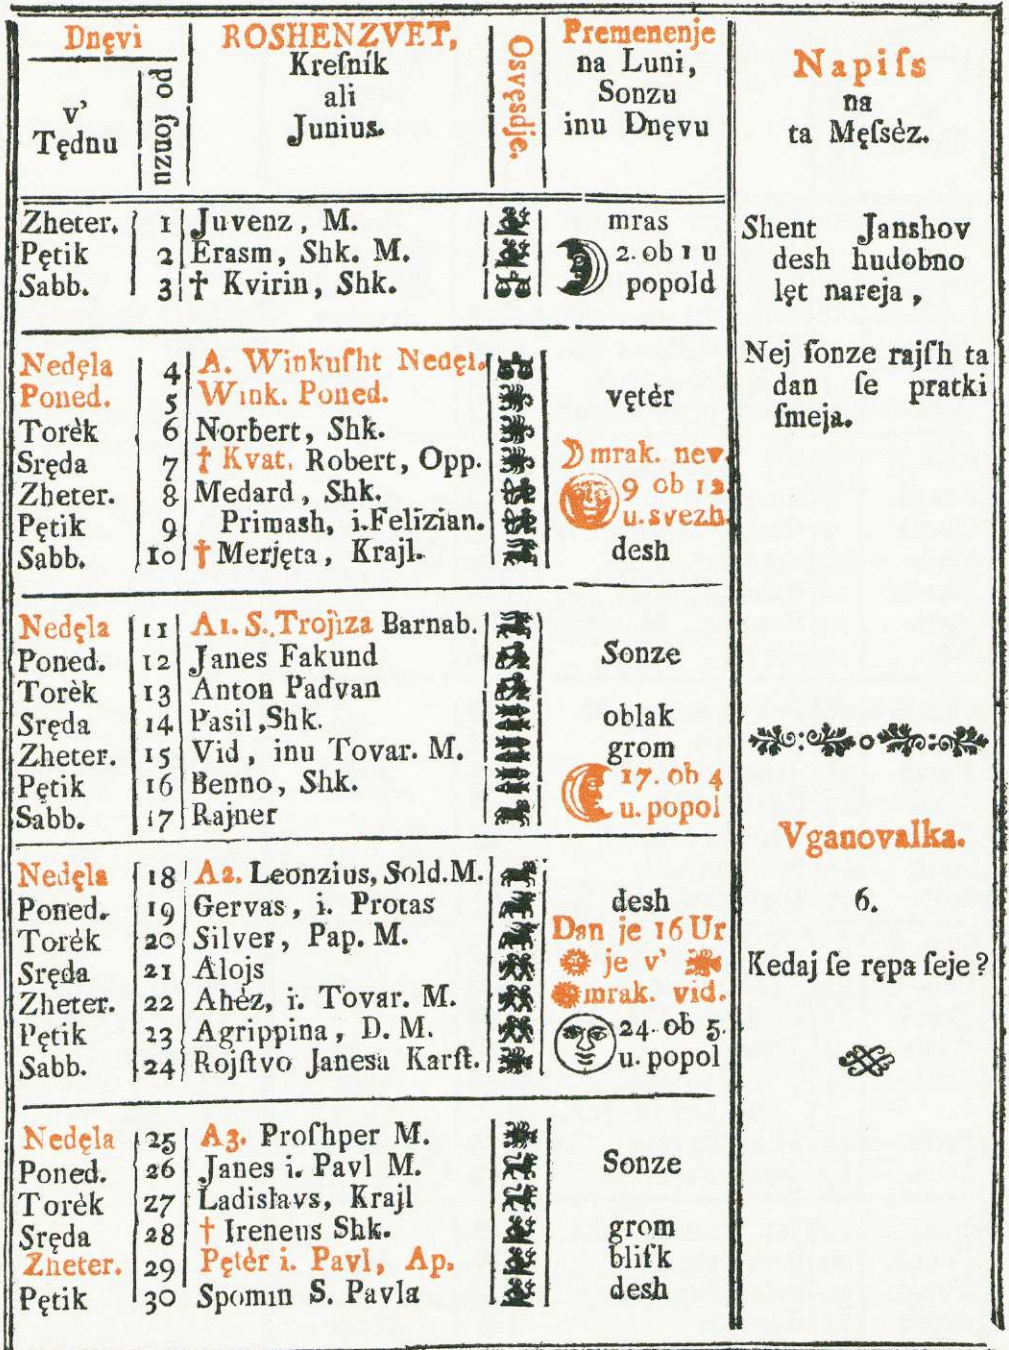 Dnęvi
v'
Tędnu
po ſonzu
ROSHENZVET,
Kreſník
ali
Junius.
Osvęsdje.
Premenenje
na Luni,
Sonzu
inu Dnęvu
Napiſs
na
ta Męſsèz.
Zheter. 1 Juvenz, M. mras
Pętik 2 Erasm, Shk. M. 2. ob 1 u
Sabb. 3 † Kvirin, Shk. popold
Nedęla 4 A. Winkuſht Nedęl.
Poned. 5 Wink. Poned. vętèr
Torèk 6 Norbert, Shk.
Sręda 7 † Kvat. Robert, Opp. mrak. nev.
Zheter. 8 Medard, Shk. 9 ob 12.
Pętik 9 Primash, i. Felizian. u. svezh.
Sabb. 10 † Merjęta, Krajl. desh
Nedęla 11 A1. S. Trojìza Barnab.
Poned. 12 Janes Fakund Sonze
Torèk 13 Anton Padvan
Sręda 14 Pasil, Shk. oblak
Zheter. 15 Vid, inu Tovar. M. grom
Pętik 16 Benno, Shk. 17. ob 4
Sabb. 17 Rajner u. popol
Nedęla 18 A2. Leonzius, Sold. M.
Poned. 19 Gervas, i. Protas desh
Torèk 20 Silver, Pap. M. Dan je 16 Ur
Sręda 21 Alojs je v'
Zheter. 22 Ahèz, i. Tovar. M. mrak. vid.
Pętik 23 Agrippina, D. M. 24. ob 5.
Sabb. 24 Rojſtvo Janesa Karſt. u. popol
Nedęla 25 A3. Proſhper M.
Poned. 26 Janes i. Pavl M. Sonze
Torèk 27 Ladislavs, Krajl
Sręda 28 † Ireneus Shk. grom
Zheter. 29 Pętèr i. Pavl, Ap. bliſk
Pętik 30 Spomin S. Pavla desh
Shent Janshov
desh hudobno
lęt nareja,
Nej ſonze rajſh ta
dan ſe pratki
ſmeja.
Vganovalka.
6.
Kedaj ſe rępa ſeje?